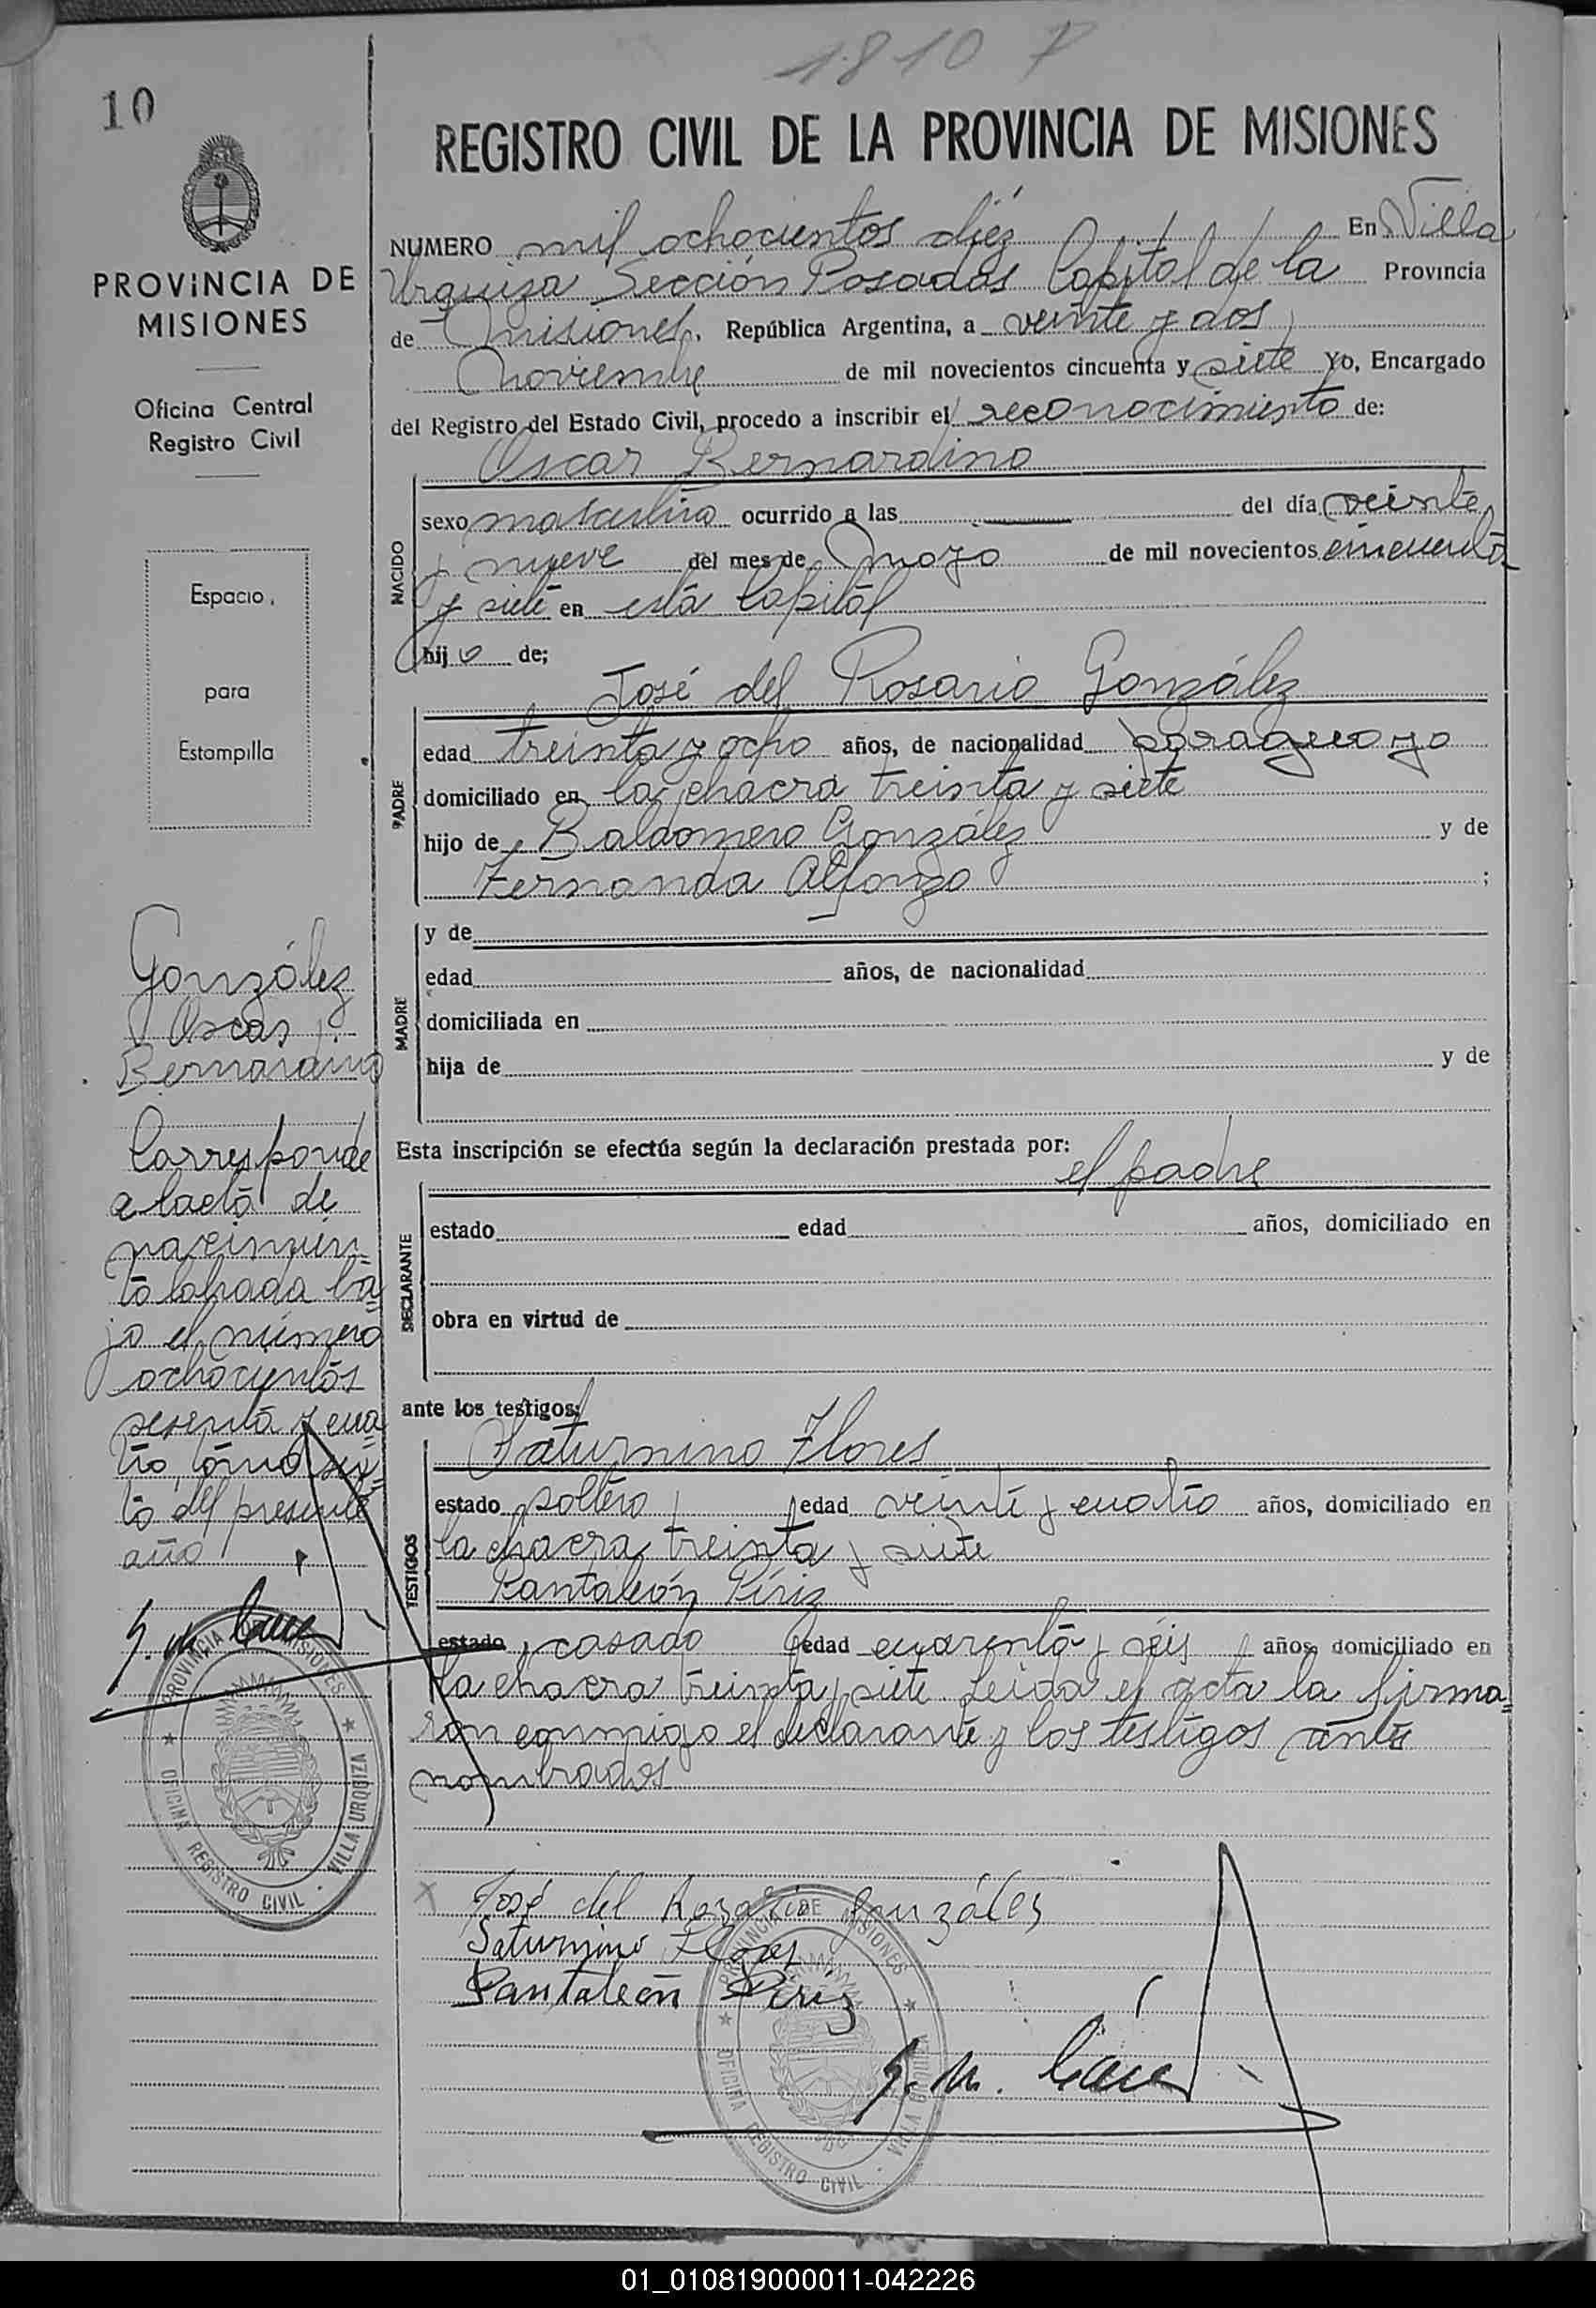 1810 P
10
REGISTRO CIVIL DE LA PROVINCIA DE MISIONES
PROVINCIA DE
MISIONES
Oficina Central
Registro Civil
Espacio
para
Estampilla
NUMERO mil ochocientos diez En Villa
Urquiza Sección Posadas Capital de la Provincia
de Misiones, República Argentina, a veinte y dos
Noviembre de mil novecientos cincuenta y siete Yo, Encargado
del Registro del Estado Civil, procedo a inscribir el reconocimiento de:
Oscar Bernardino
NACIDO
sexo masculino ocurrido a las del día veinte
y nueve del mes de Mayo de mil novecientos cincuenta
y siete en esta Capital
hijo de;
José del Rosario González
PADRE
edad treinta y ocho años, de nacionalidad paraguayo
domiciliado en la chacra treinta y siete
hijo de Baldomero González y de
Fernanda Alfonzo ;
MADRE
y de
edad años, de nacionalidad
domiciliada en
hija de y de
Esta inscripción se efectúa según la declaración prestada por:
el padre
DECLARANTE
estado edad años, domiciliado en
obra en virtud de
ante los testigos:
TESTIGOS
Saturnino Flores
estado soltero, edad veinte y cuatro años, domiciliado en
la chacra treinta y siete
Pantaleón Píriz
estado, casado edad cuarenta y seis, años, domiciliado en
la chacra treinta y siete. Leida el acta la firma=
ron conmigo el declarante y los testigos antes
nombrados
José del Rosario Gonzáles
Saturnino Flores
Pantaleón Píriz
González
Oscar
Bernardino
Corresponde
al acta de
nacimien=
to labrada ba=
jo el número
ochocientos
sesenta y cua=
tro, tomo sex=
to del presente
año
PROVINCIA DE MISIONES
OFICINA REGISTRO CIVIL - VILLA URQUIZA
PROVINCIA DE MISIONES
OFICINA REGISTRO CIVIL - VILLA URQUIZA
01_010819000011-042226